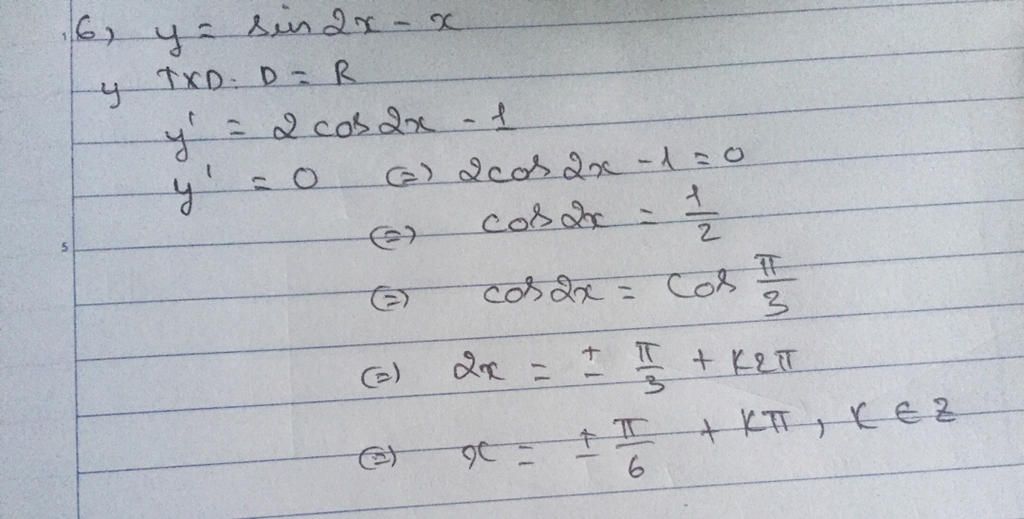 6) y = sin 2x - x
y TXD: D = R
y' = 2 cos 2x - 1
y' = 0 (=) 2cos 2x - 1 = 0
(=) cos 2x = 1/2
5
(=) cos 2x = cos π/3
(=) 2x = ± π/3 + K2π
(=) x = ± π/6 + Kπ, K ∈ Z